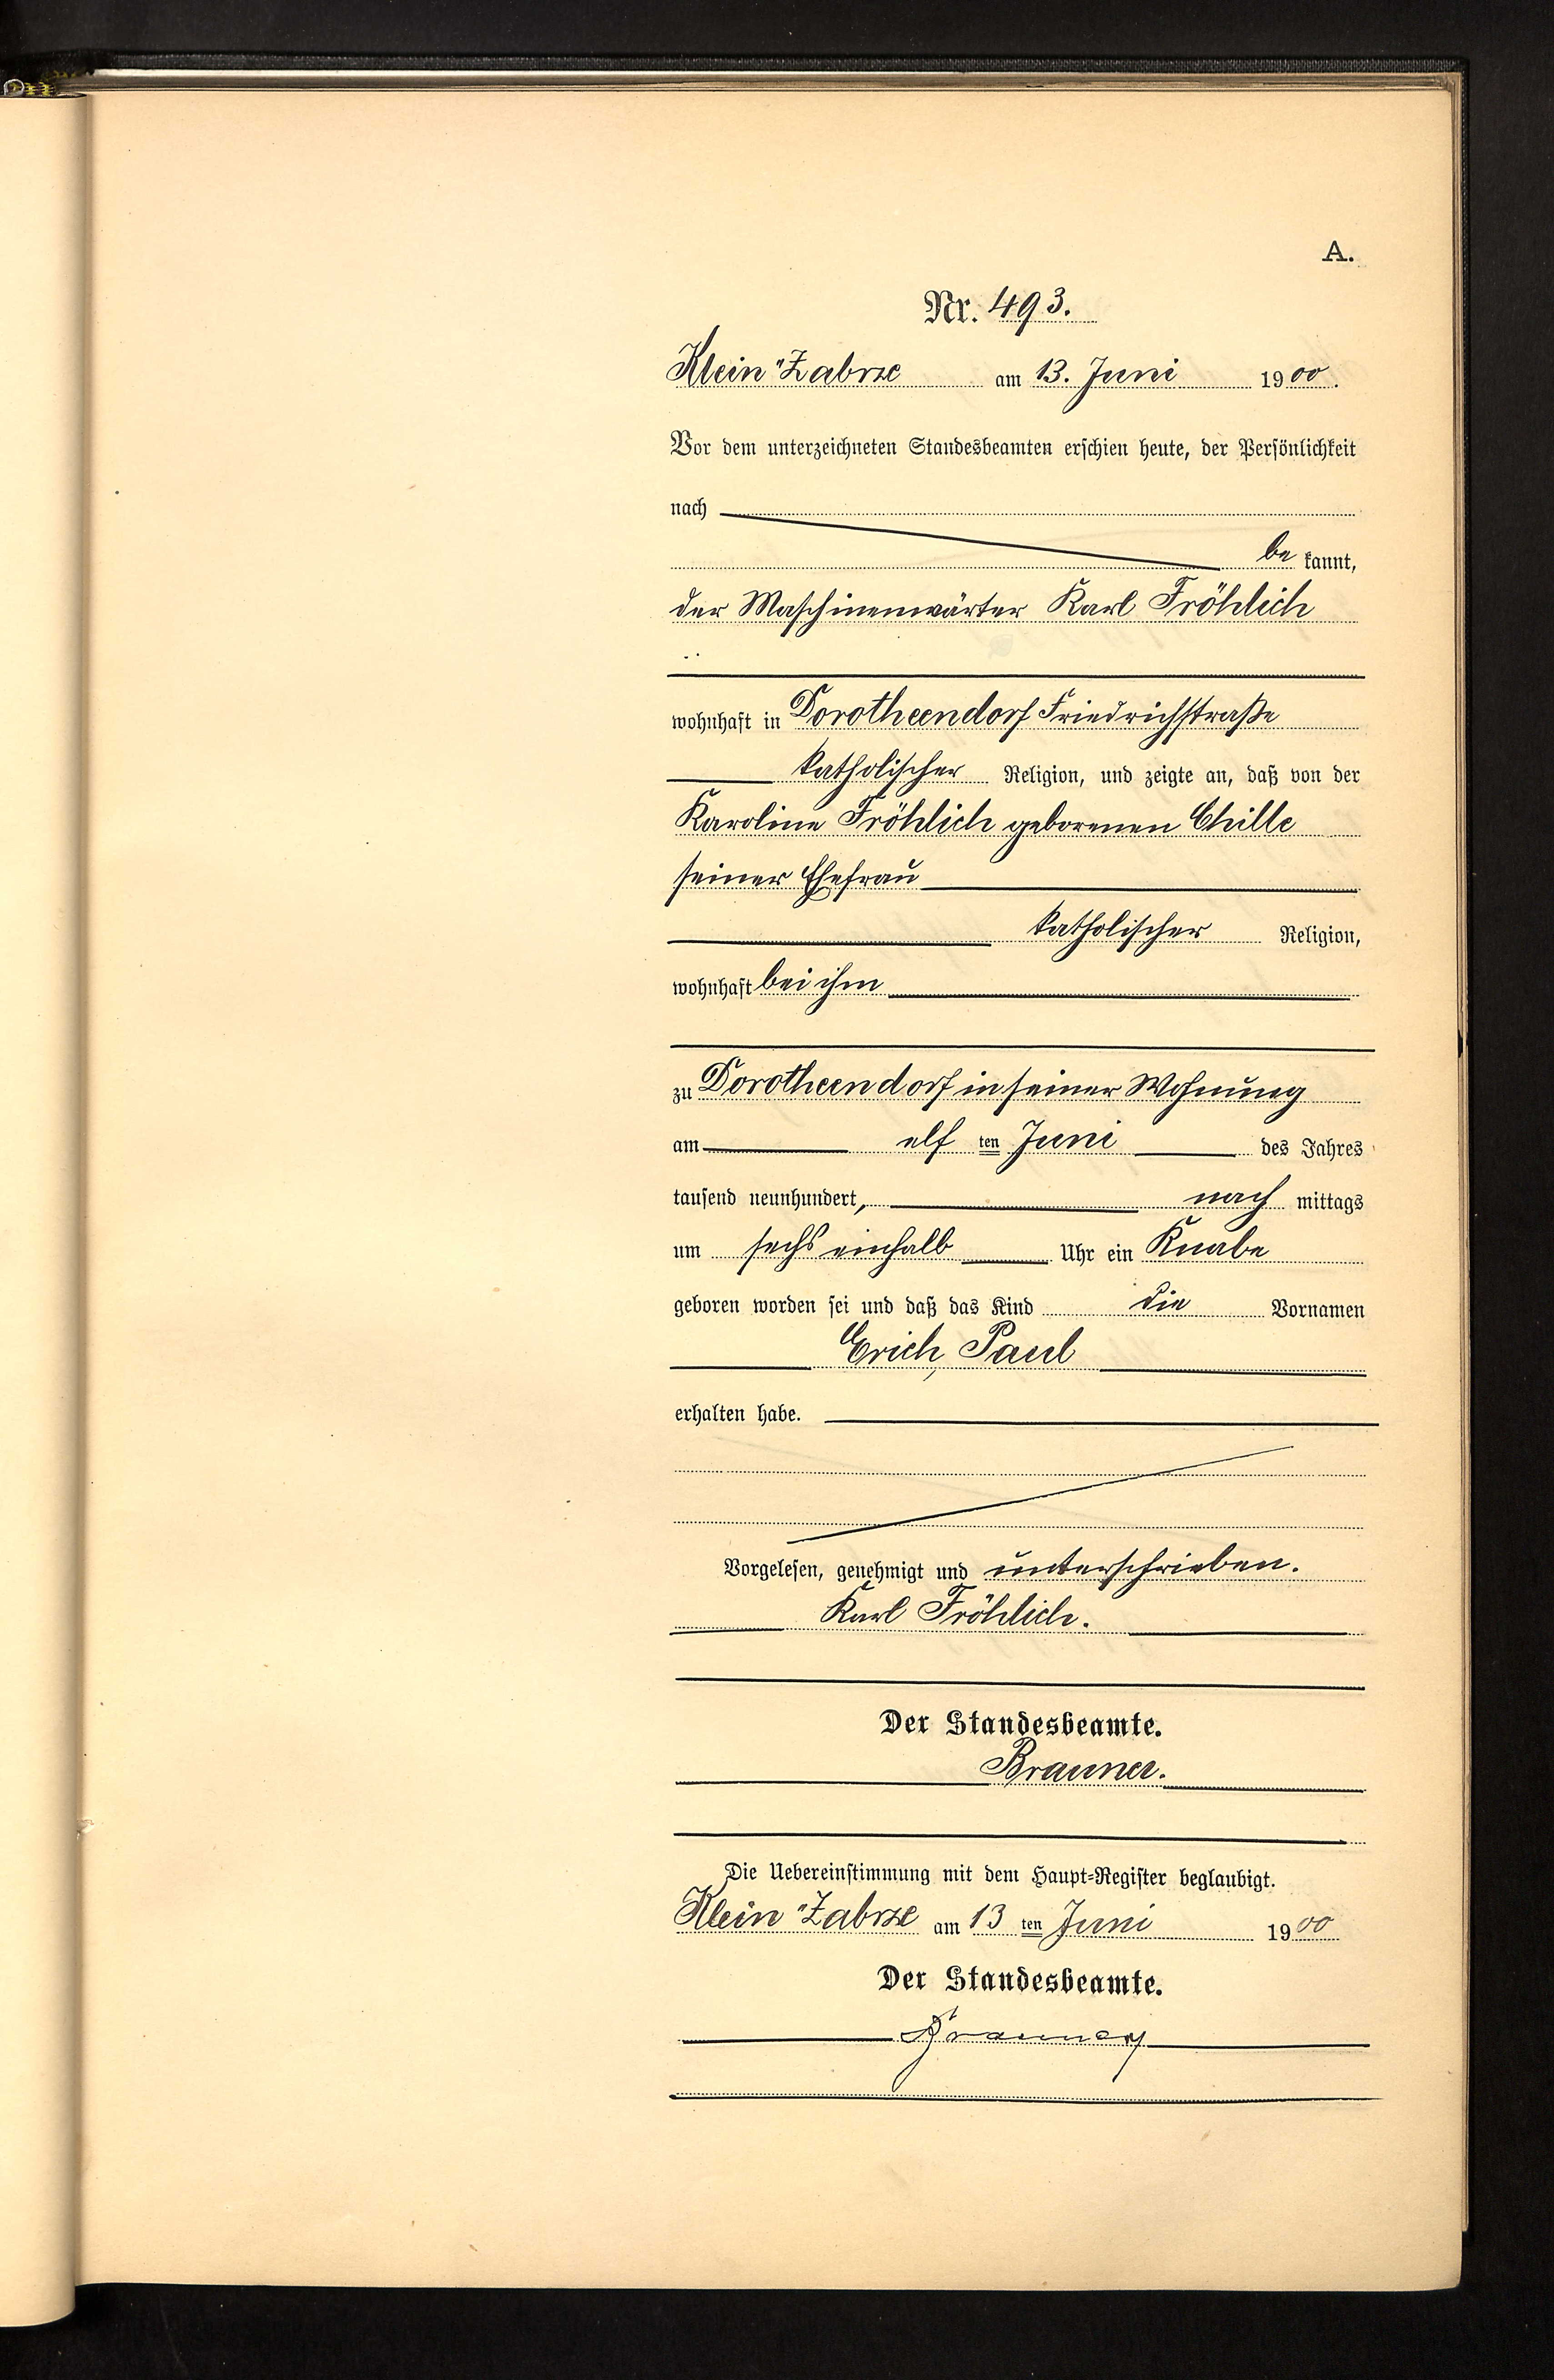 A.
Nr. 493.
Klein-Zabrze am 13. Juni 1900.
Vor dem unterzeichneten Standesbeamten erschien heute, der Persönlichkeit
nach
bekannt,
der Maschinenwärter Karl Fröhlich
wohnhaft in Dorotheendorf Friedrichstraße
katholischer Religion, und zeigte an, daß von der
Karoline Fröhlich geborenen Chille
seiner Ehefrau
katholischer Religion,
wohnhaft bei ihm
zu Dorotheendorf in seiner Wohnung
am elf ten Juni des Jahres
tausend neunhundert, nach mittags
um sechs einhalb Uhr ein Knabe
geboren worden sei und daß das Kind die Vornamen
Erich, Paul
erhalten habe.
Vorgelesen, genehmigt und unterschrieben.
Karl Fröhlich.
Der Standesbeamte.
Brauner.
Die Uebereinstimmung mit dem Haupt-Register beglaubigt.
Klein-Zabrze am 13 ten Juni 1900
Der Standesbeamte.
Brauner